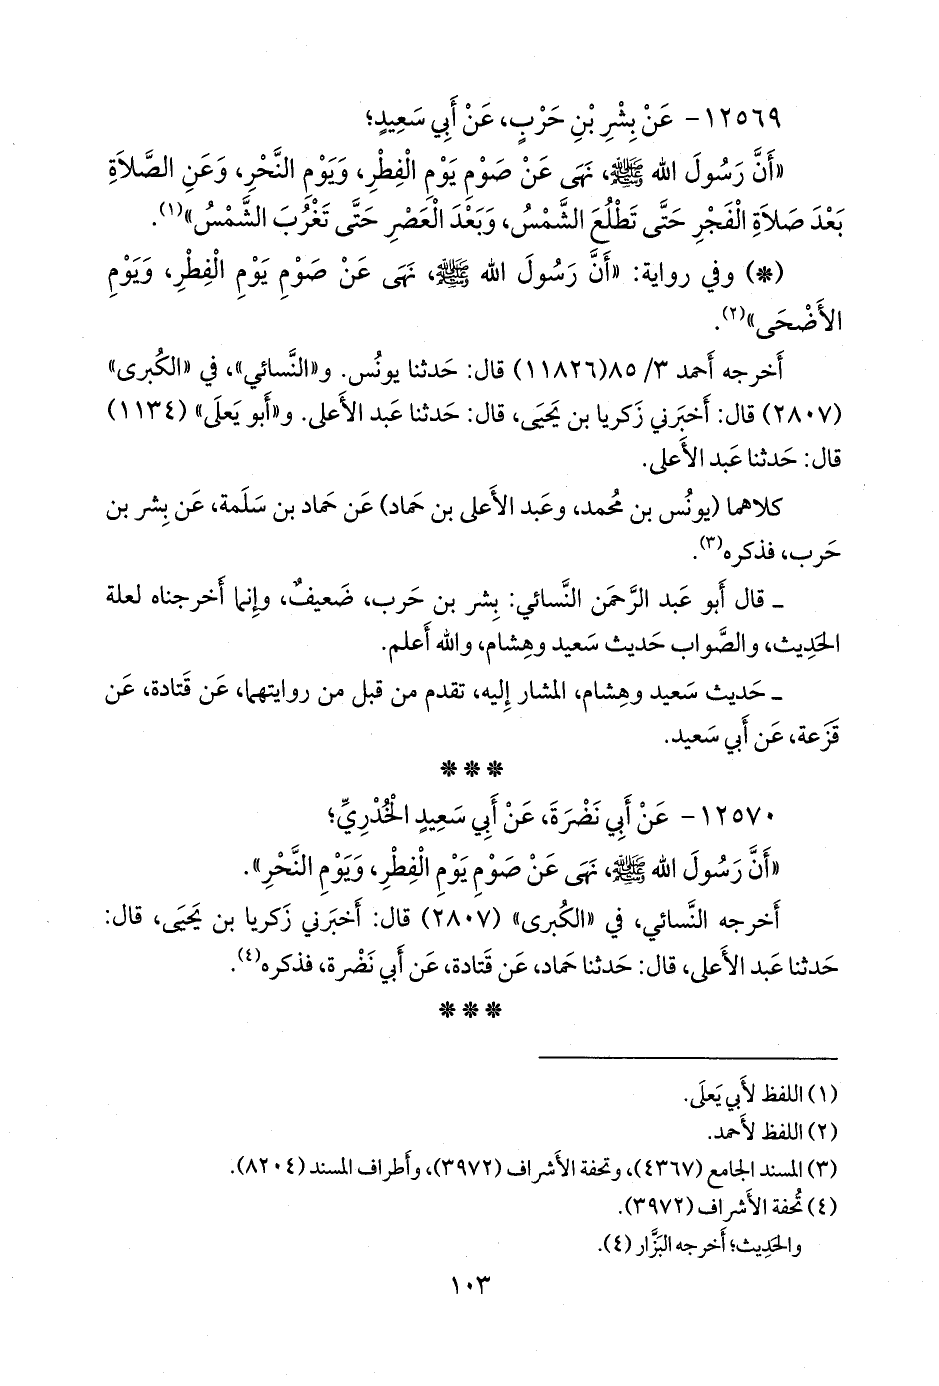 ١٢٥٦٩- عَنْ بِشْرِ بْنِ حَرْبٍ، عَنْ أَبِي سَعِيدٍ؛
«أَنَّ رَسُولَ الله ﷺ، نَهَى عَنْ صَوْمِ يَوْمِ الْفِطْرِ، وَيَوْمِ النَّحْرِ، وَعَنِ الصَّلاَةِ
بَعْدَ صَلاَةِ الْفَجْرِ حَتَّى تَطْلُعَ الشَّمْسُ، وَبَعْدَ الْعَصْرِ حَتَّى تَغْرُبَ الشَّمْسُ»(١).
(*) وفي رواية: «أَنَّ رَسُولَ الله ﷺ، نَهَى عَنْ صَوْمِ يَوْمِ الْفِطْرِ، وَيَوْمِ
الأَضْحَى»(٢).
أَخرجه أَحمد ٣/ ٨٥(١١٨٢٦) قال: حَدثنا يونُس. و«النَّسائي»، في «الكُبرى»
(٢٨٠٧) قال: أَخبَرني زَكريا بن يَحيَى، قال: حَدثنا عَبد الأَعلى. و«أَبو يَعلَى» (١١٣٤)
قال: حَدثنا عَبد الأَعلى.
كلاهما (يونُس بن مُحمد، وعَبد الأَعلى بن حَماد) عَن حَماد بن سَلَمة، عَن بِشر بن
حَرب، فذكره(٣).
ـ قال أَبو عَبد الرَّحمَن النَّسائي: بِشر بن حَرب، ضَعيفٌ، وإِنما أَخرجناه لعلة
الحَدِيث، والصَّواب حَديث سَعيد وهِشام، والله أَعلم.
ـ حَديث سَعيد وهِشام، المشار إِليه، تقدم من قبل من روايتهما، عَن قَتادة، عَن
قَزَعة، عَن أَبي سَعيد.
***
١٢٥٧٠- عَنْ أَبِي نَضْرَةَ، عَنْ أَبِي سَعِيدٍ الْخُدْرِيِّ؛
«أَنَّ رَسُولَ الله ﷺ، نَهَى عَنْ صَوْمِ يَوْمِ الْفِطْرِ، وَيَوْمِ النَّحْرِ».
أَخرجه النَّسائي، في «الكُبرى» (٢٨٠٧) قال: أَخبَرني زَكريا بن يَحيَى، قال:
حَدثنا عَبد الأَعلى، قال: حَدثنا حَماد، عَن قَتادة، عَن أَبي نَضْرة، فذكره(٤).
***
(١) اللفظ لأَبي يَعلَى.
(٢) اللفظ لأَحمد.
(٣) المسند الجامع (٤٣٦٧)، وتحفة الأَشراف (٣٩٧٢)، وأَطراف المسند (٨٢٠٤).
(٤) تُحفة الأَشراف (٣٩٧٢).
والحَدِيث؛ أَخرجه البَزَّار (٤).
١٠٣